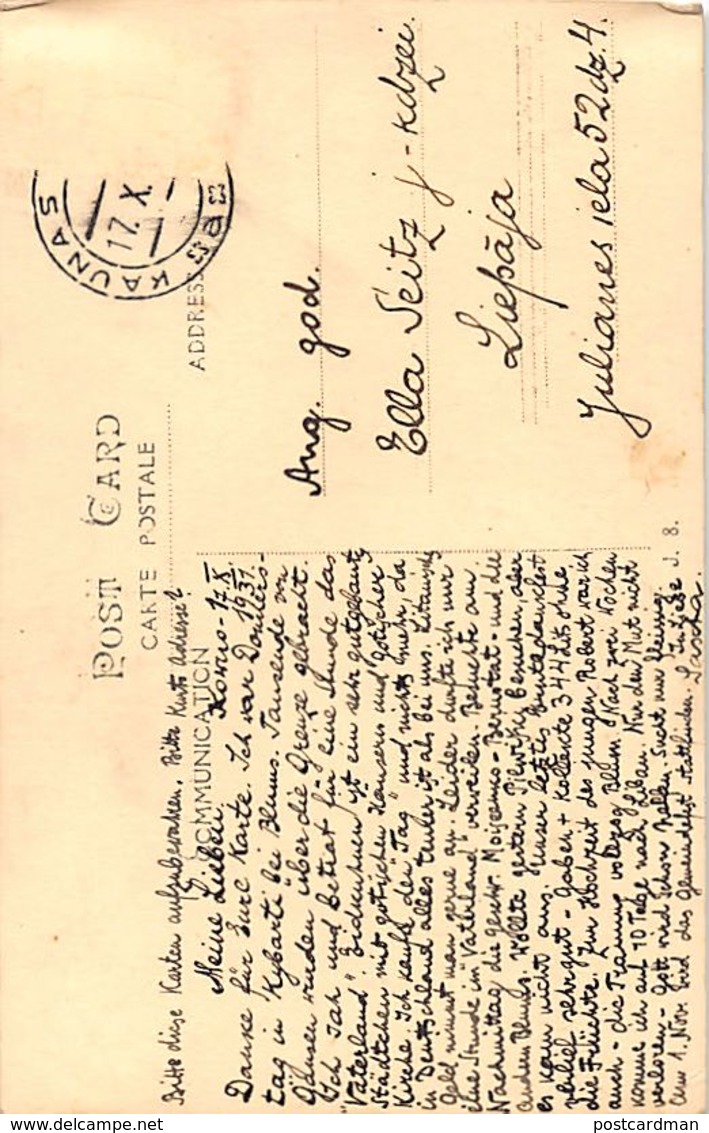 POST CARD
CARTE POSTALE
COMMUNICATION
ADDRESS
KAUNAS
17. X.
Bitte diese Karten aufzubewahren. Bitte Kurts Adresse!
Kowno - 17. X. 1931.
Meine Lieben!
Danke für Eure Karte. Ich war Donners-
tag in Kybarti bei Blums. Tausende von
Gänsen wurden über die Grenze gebracht.
Ich sah und betrat für eine Stunde das
"Vaterland". Eidkuhnen ist ein sehr gutgebautes
Städtchen mit gotischen Häusern und gotischer
Kirche. Ich kaufte den "Tag" und nichts mehr, da
in Deutschland alles teurer ist als bei uns. Litauisches
Geld nimmt man gerne an. Leider durfte ich nur
eine Stunde im "Vaterland" verweilen. Besuchte am
Nachmittag die und die
andren Blums. Wollte gestern Pilwiski besuchen, aber
es kam nicht aus. Unser letztes Erntedankfest
verlief sehr gut - Gaben + Kollekte 344 Lit. ohne
die Früchte. Zur Hochzeit des jungen Robert war ich
auch - die Trauung vollzog Blum. Nach zwei Wochen
komme ich auf 10 Tage nach Libau. Nur den Mut nicht
verloren - Gott wird schon helfen. Sucht nur fleissig.
Am 1. Nov. wird das Gemeindefest stattfinden.
Sascha.
J. 8.
Ang. god.
Ella Seitz j-kdzei.
Liepāja
Julianes iela 52 dz. 4.
postcardman